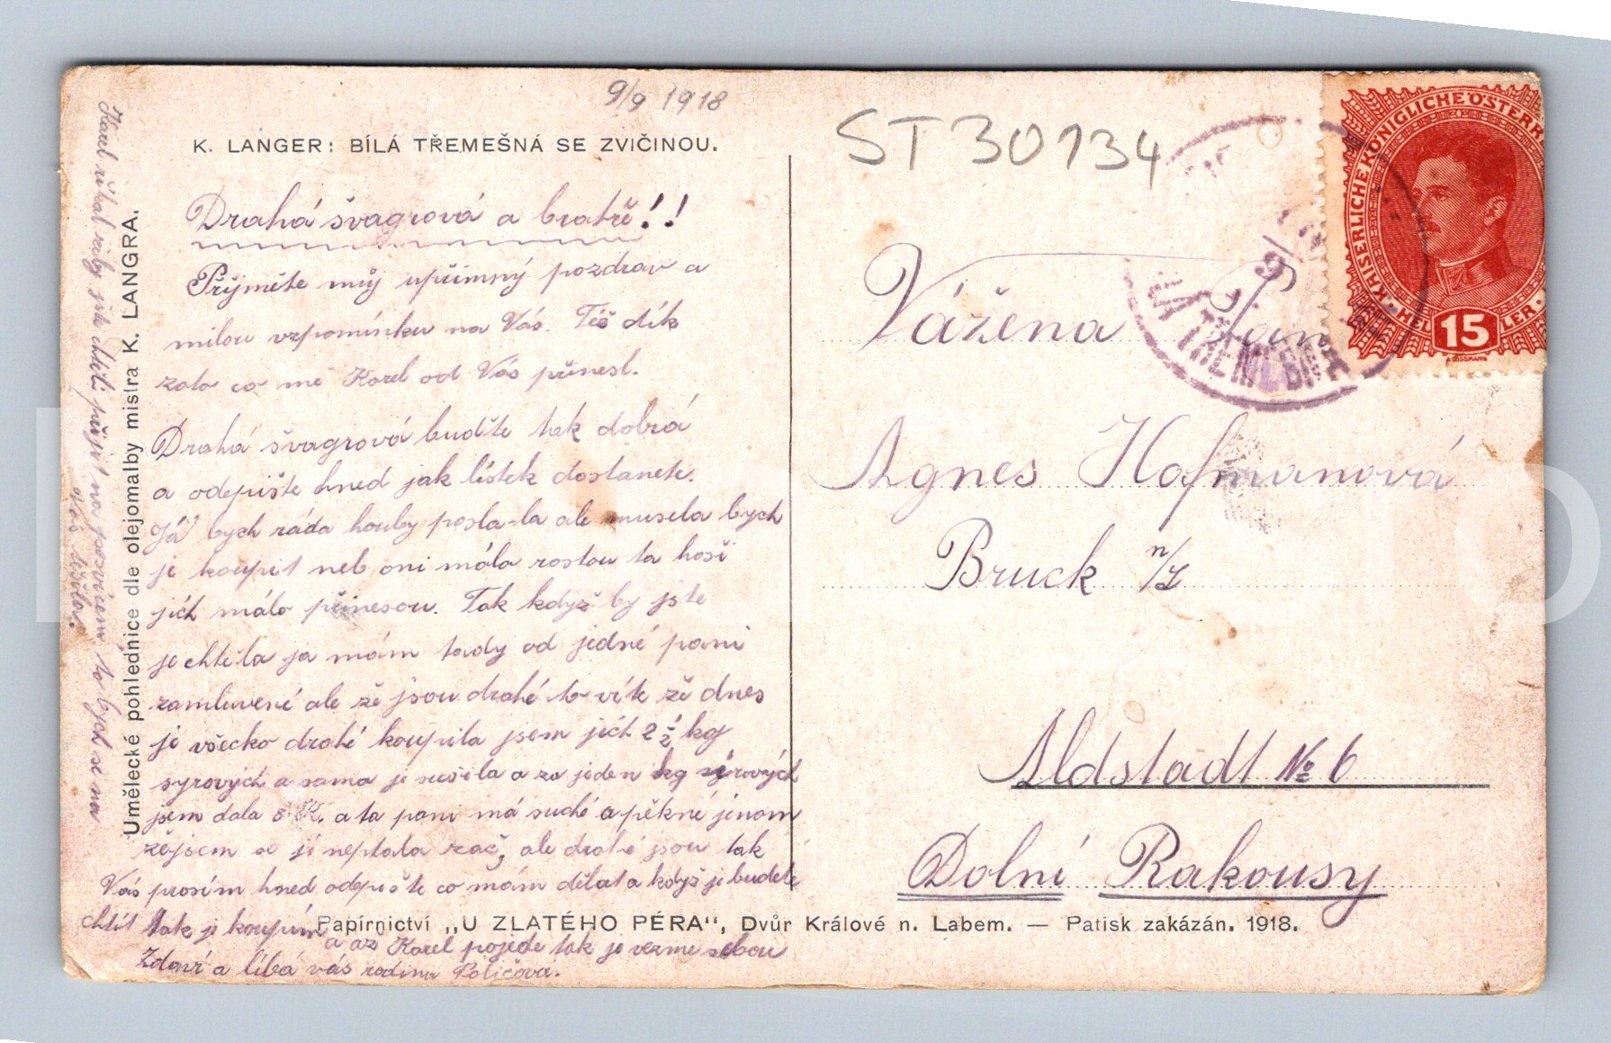 9/9 1918
K. LANGER: BÍLÁ TŘEMEŠNÁ SE ZVIČINOU.
ST 30134
Drahá švagrová a bratře!!
Přijměte můj upřímný pozdrav a
milou vzpomínku na Vás. Též dík
zato co mě Karel od Vás přinesl.
Drahá švagrová buďte tak dobrá
a odepište hned jak lístek dostanete.
Já bych ráda houby posla-la ale musela bych
je koupit neb oni málo rostou ta hoši
jich málo přinesou. Tak když by jste
je chtěla ja mám tady od jedné pani
zamluvené ale že jsou drahé to víte že dnes
je všecko drahé koupila jsem jich 2 1/2 kg
syrových a sama je sušila a za jeden kg sirových
jsem dala 8 K. a ta pani má suché a pěkné jenom
žejsem se jí neptala zač, ale drahé jsou tak
Vás prosím hned odepište co mám dělat a když je budete
chtít tak je koupím
a až Karel pojede tak je vezme sebou
Zdraví a líbá vás rodina
Karel říkal
přijít na
to bych se na
těšila.
Umělecké pohlednice dle olejomalby mistra K. LANGRA.
Papírnictví „U ZLATÉHO PÉRA", Dvůr Králové n. Labem. — Patisk zakázán. 1918.
KAISERLICHE KÖNIGLICHE ÖSTERR
HELLER
15
TŘEME
Vážena Pani
Agnes Hofmanová
Bruck n/L
Aldstadt № 6
Dolní Rakousy